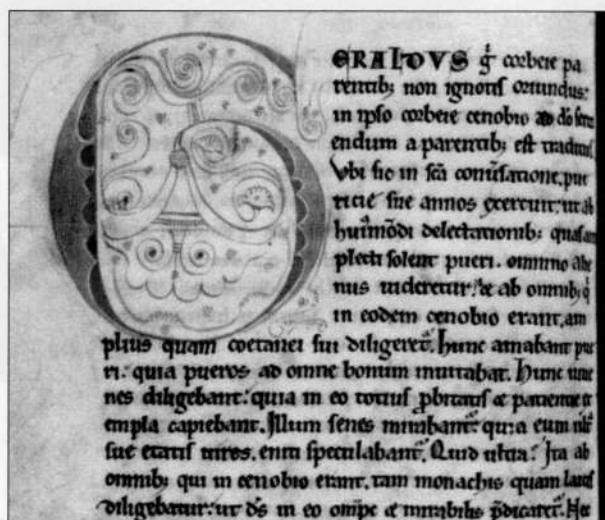 GERALDVS g͛ corbeie pa
rentib; non ignotis oriundus:
in ipso corbeie cenobio ad dō seru
endum a parentib; est traditus
Vbi sic in sc̄a conūsatione, pue
ricie sue annos exercuit: ut ab
hui᷒mōdi delectationib; quas am
plecti solent pueri. omnino alie
nus uideretur: & ab omnib; q̇
in eodem cenobio erant, am
plius quam coetanei sui diligeret᷑. Hunc amabant pue
ri: quia pueros ad omne bonum inuitabat. Hunc iuue
nes diligebant: quia in eo totius ꝓbitatis & patientie ex
empla capiebant. Illum senes mirabant᷑: quia eum ult᷑
sue etatis uires. enm speculabant᷑. Quid ultra? Ita ab
omnib; qui in cenobio erant, tam monachis quam laicis
diligebatur: ut d̄s in eo om̄ps & mirabilis p̄dicaret᷑. Hec